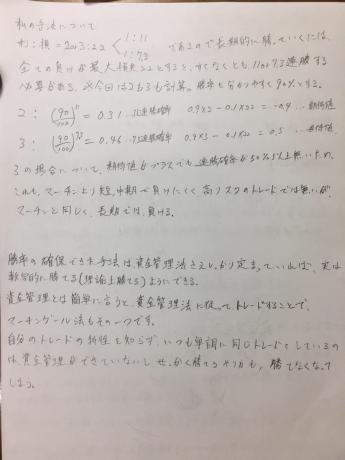 私の手法について
利:損=2or3:22 < 1:11
1:7.3 であるので長期的に勝っていくには、
全ての負けが最大損失22とすると、すくなくとも、11or7.3連勝する
必要がある。※今回は2も3も計算。勝率を分かりやすく90%とする。
2: (90/100)^11 = 0.31 …11連勝確率 0.9×2-0.1×22=-0.4 …期待値
3: (90/100)^7.3 = 0.46 …7.3連勝確率 0.9×3-0.1×22=0.5 …期待値
3の場合について、期待値がプラスでも連勝確率が50%以上無いため、
これも、マーチンより短、中期で負けにくく、高リスクのトレードでは無いが、
マーチンと同じく、長期では負ける。
勝率の確保できた手法は資金管理法さえしっかり定まっていれば、実は
数学的に勝てる(理論上勝てる)ようにできる。
資金管理とは簡単に言うと、資金管理法に従ってトレードすることで、
マーチンゲール法もその一つです。
自分のトレードの特性を知らず、いつも単調に同じトレードをしているの
は資金管理ができていないし、せっかく勝てるやり方も、勝てなくなって
しまう。